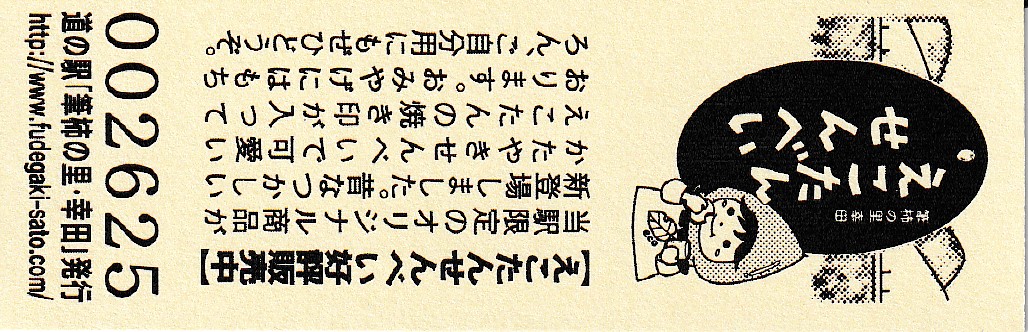 筆柿の里幸田
えこたん
せんべい
【えこたんせんべい 好評販売中】
当駅限定のオリジナル商品が
新登場しました。昔なつかしい
かたやきせんべいで可愛い
えこたんの焼き印が入って
おります。おみやげにはもち
ろん、ご自分用にもぜひどうぞ。
002625
道の駅「筆柿の里・幸田」発行
http://www.fudegaki-sato.com/